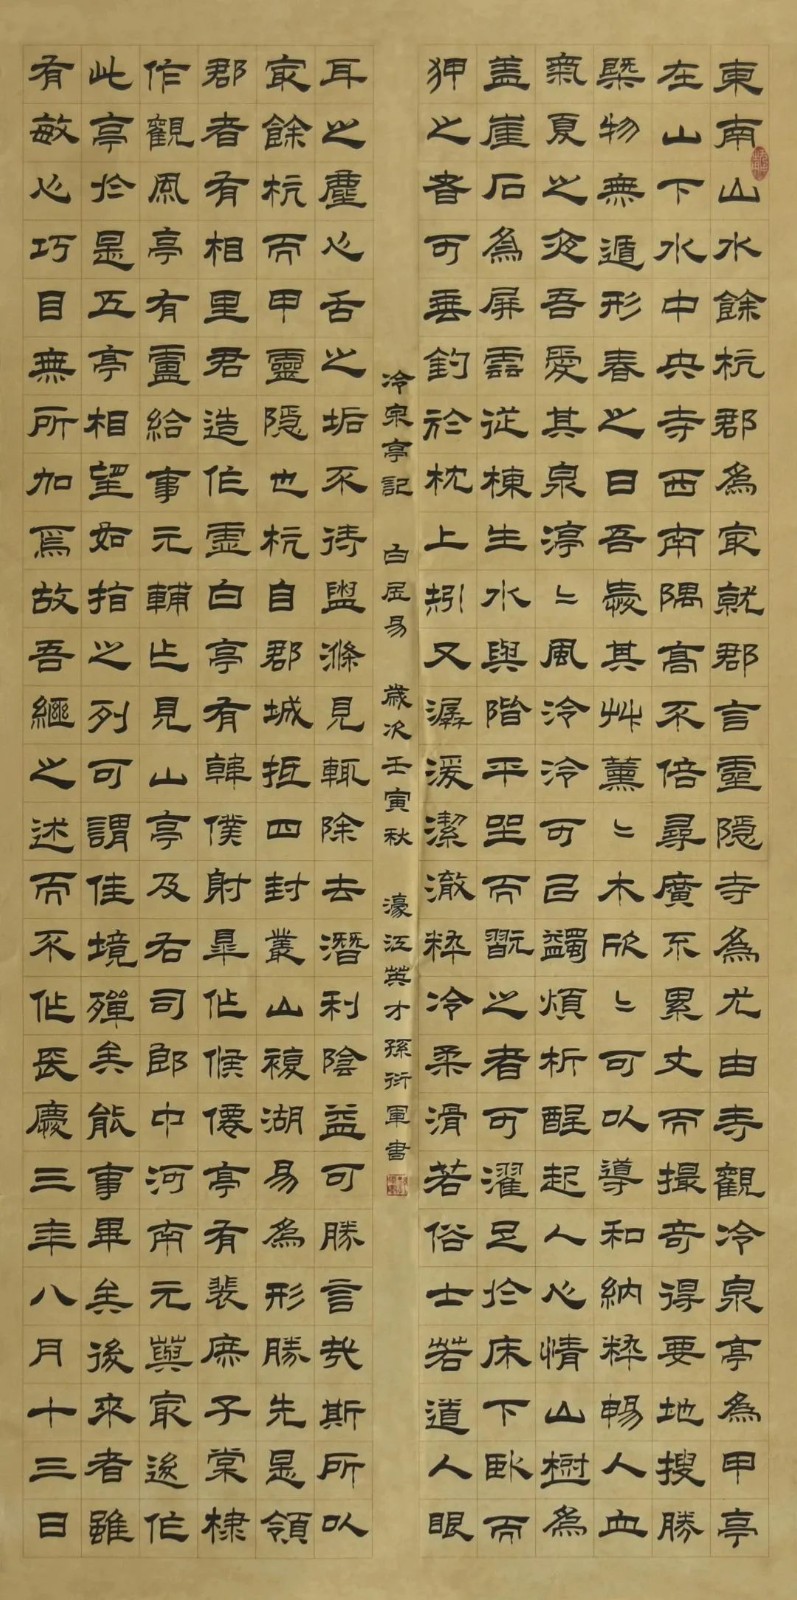 東南山水餘杭郡為冣就郡言靈隱寺為尤由寺觀冷泉亭為甲亭
在山下水中央寺西南隅高不倍尋廣不累丈而撮奇得要地搜勝
槩物無遁形春之日吾愛其艸薰〻木欣〻可以導和納粹暢人血
氣夏之夜吾愛其泉渟〻風泠泠可㠯蠲煩析酲起人心情山樹為
蓋崖石為屏雲從棟生水與階平坐而翫之者可濯足於床下臥而
狎之者可垂釣於枕上矧又潺湲潔澈粹冷柔滑若俗士若道人眼
冷泉亭記 白居易 歲次壬寅秋 濠江英才孫衍軍書
耳之塵心舌之垢不待盥滌見輒除去潛利陰益可勝言哉斯所以
冣餘杭而甲靈隱也杭自郡城抵四封叢山複湖易為形勝先是領
郡者有相里君造作虛白亭有韓僕射皋作候僊亭有裴庶子棠棣
作觀風亭有盧給事元輔作見山亭及右司郎中河南元藇冣後作
此亭於是五亭相望如指之列可謂佳境殫矣能事畢矣後來者雖
有敏心巧目無所加焉故吾繼之述而不作長慶三年八月十三日